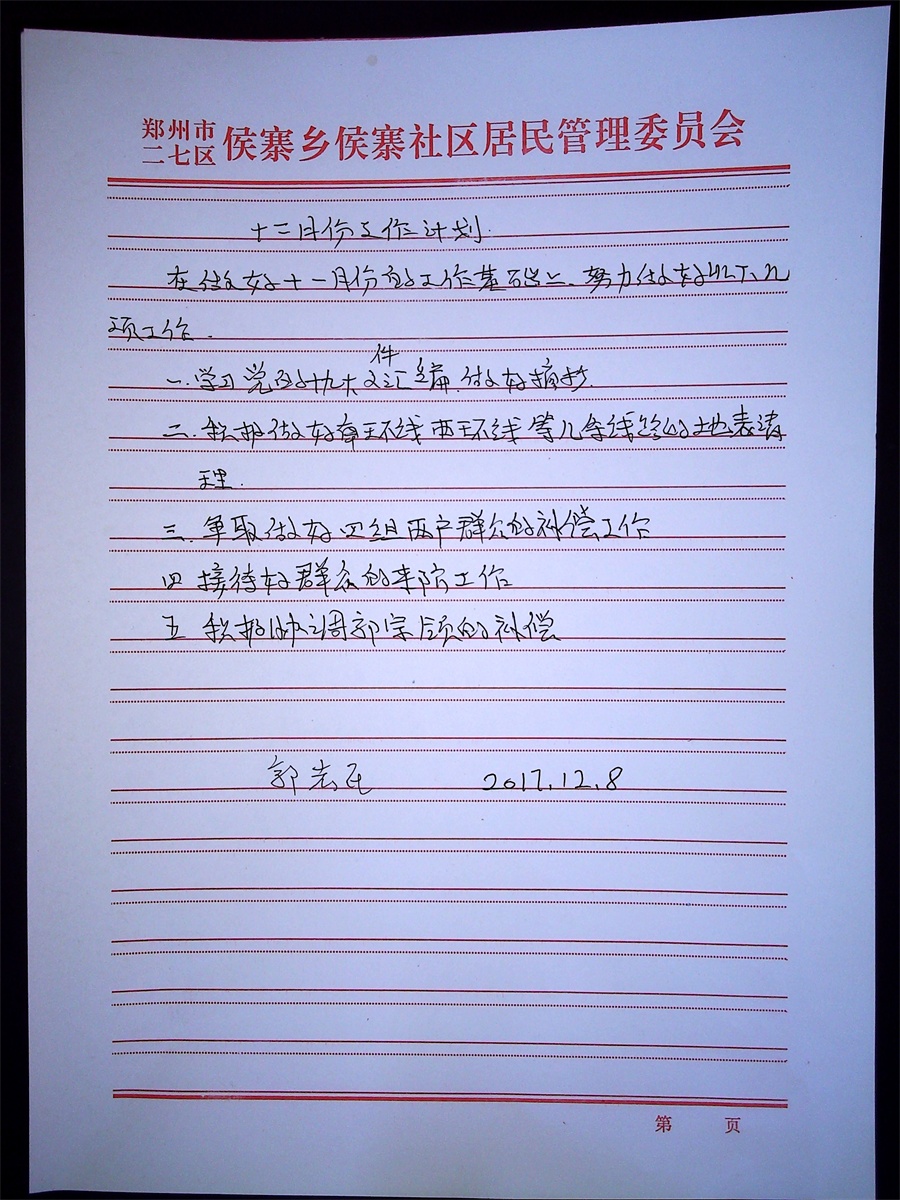 郑州市
二七区 侯寨乡侯寨社区居民管理委员会
十二月份工作计划.
在做好十一月份的工作基础上、努力做好以下几
项工作.
一.学习党的十九大文件汇编.做好摘抄.
二.积极做好南环线西环线等几条线路的地表清
理.
三.争取做好四组两户群众的补偿工作
四 接待好群众的来访工作
五 积极协调郭宗领的补偿
郭 民 2017.12.8
第 页